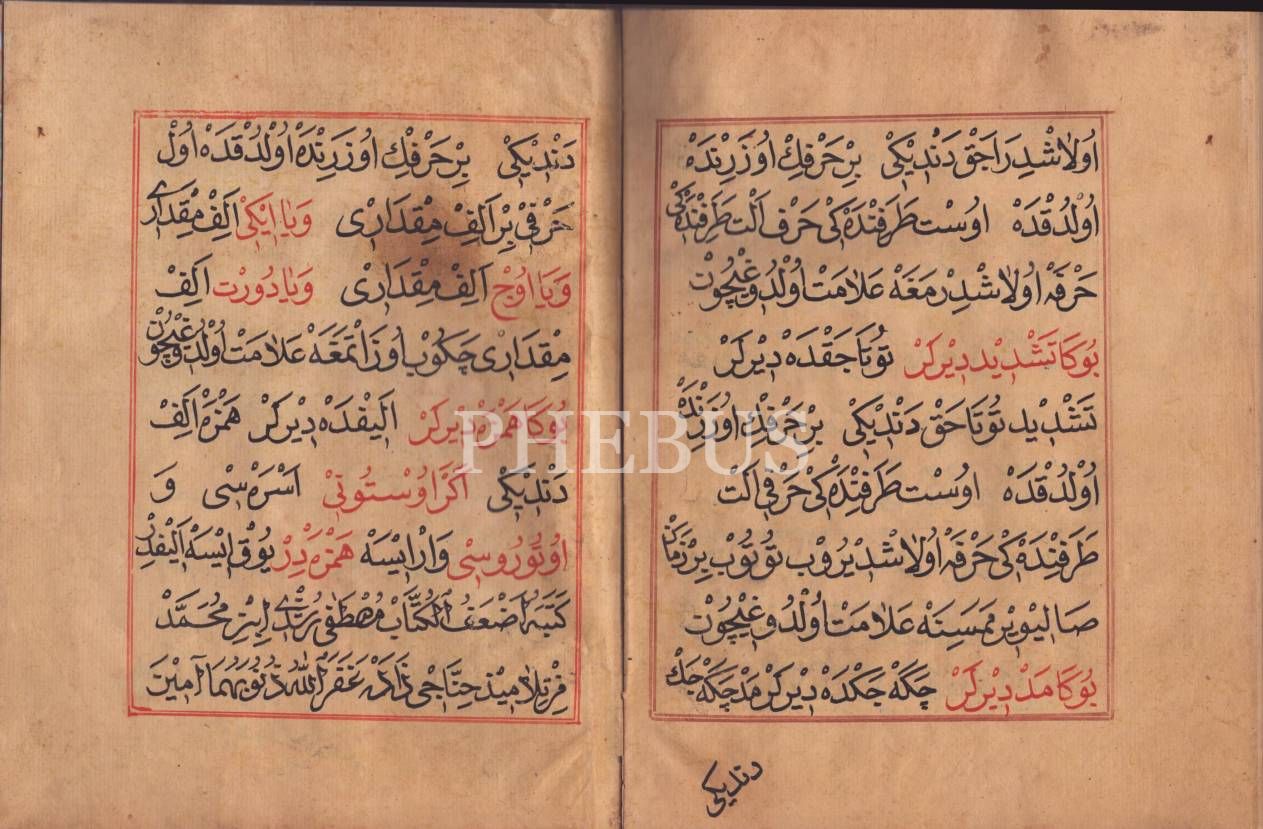 اُولَاشْدِرَاجَقْ دَنْدِيكِى بِرْ حَرْفِكْ اُوزَرِنْدَهْ
اُولْدُقْدَهْ اوُسْت طَرَفِنْدَهْ كِى حَرْفِ اَلْتْ طَرَفِنْدَهْ كِى
حَرْفَهْ اُولَاشْدِرْمَغَهْ عَلَامَتْ اُولْدُوغِيچُونْ
بُوكَا تَشْدِيد دِيْرلَرْ تُوتَاجَقْدَهْ دِيْرلَرْ
تَشْدِيد تُوتَاجَقْ دَنْدِيكِى بِرْ حَرْفِكْ اوُزَرِنْدَهْ
اُولْدُقْدَهْ اوُسْت طَرَفِنْدَهْ كِى حَرْفِى اَلْتْ
طَرَفِنْدَهْ كِى حَرْفَهْ اُولَاشْدِيرُوبْ تُوتُوبْ بِرْ زَمَانْ
صَالِيوِيرْمَمَسِنَهْ عَلَامَتْ اُولْدُوغِيچُونْ
بُوكَا مَدْ دِيْرلَرْ چَكَهْ جَكْدَهْ دِيْرلَرْ مَدْ چَكَهْ جَكْ
دندیكى
دَنْدِيكِى بِرْ حَرْفِكْ اوُزَرِنْدَهْ اُولْدُقْدَهْ اُولْ
حَرْفِى بِرْ اَلِفْ مِقْدَارِى وَيَا اِيكِى اَلِفْ مِقْدَارِى
وَيَا اوُچْ اَلِفْ مِقْدَارِى وَيَا دُورْتْ اَلِفْ
مِقْدَارِى چَكُوبْ اُوزَاتْمَغَهْ عَلَامَتْ اُولْدُوغِيچُونْ
بُوكَا هَمْزَهْ دِيْرلَرْ اَلِيفْدَهْ دِيْرلَرْ هَمْزَهْ اَلِفْ
دَنْدِيكِى اَكَرْ اوُسْتُونِى اَسْرَهْ سِى وَ
اوُتُورُوسِى وَارْ اِيسَهْ هَمْزَهْ دِرْ يُوقْ اِيسَهْ اَلِيفْدِرْ
كَتَبَهُ اَضْعَفُ الْكُتَّابْ مُصْطَفٰى رُشْدِى اِبْنِ مُحَمَّدْ
مِنْ تَلَامِيذِ حَاجِى زَادَهْ غَفَرَ اللّٰهُ ذُنُوبَهُمَا آمِينْ